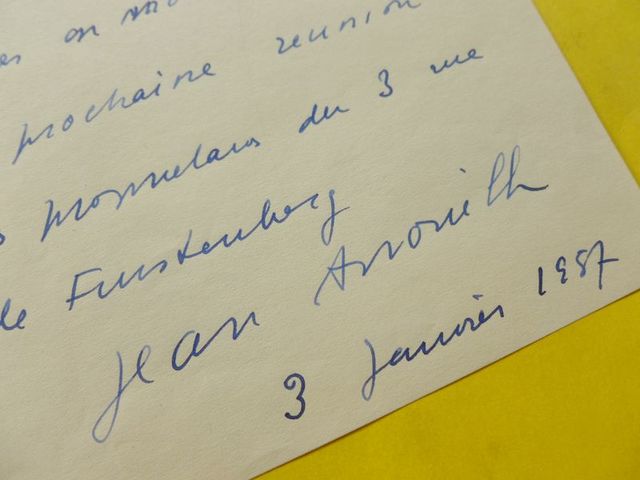 on
prochaine reunion
proprietaires du 3 rue
de Furstenberg
Jean Anouilh
3 Janvier 1987